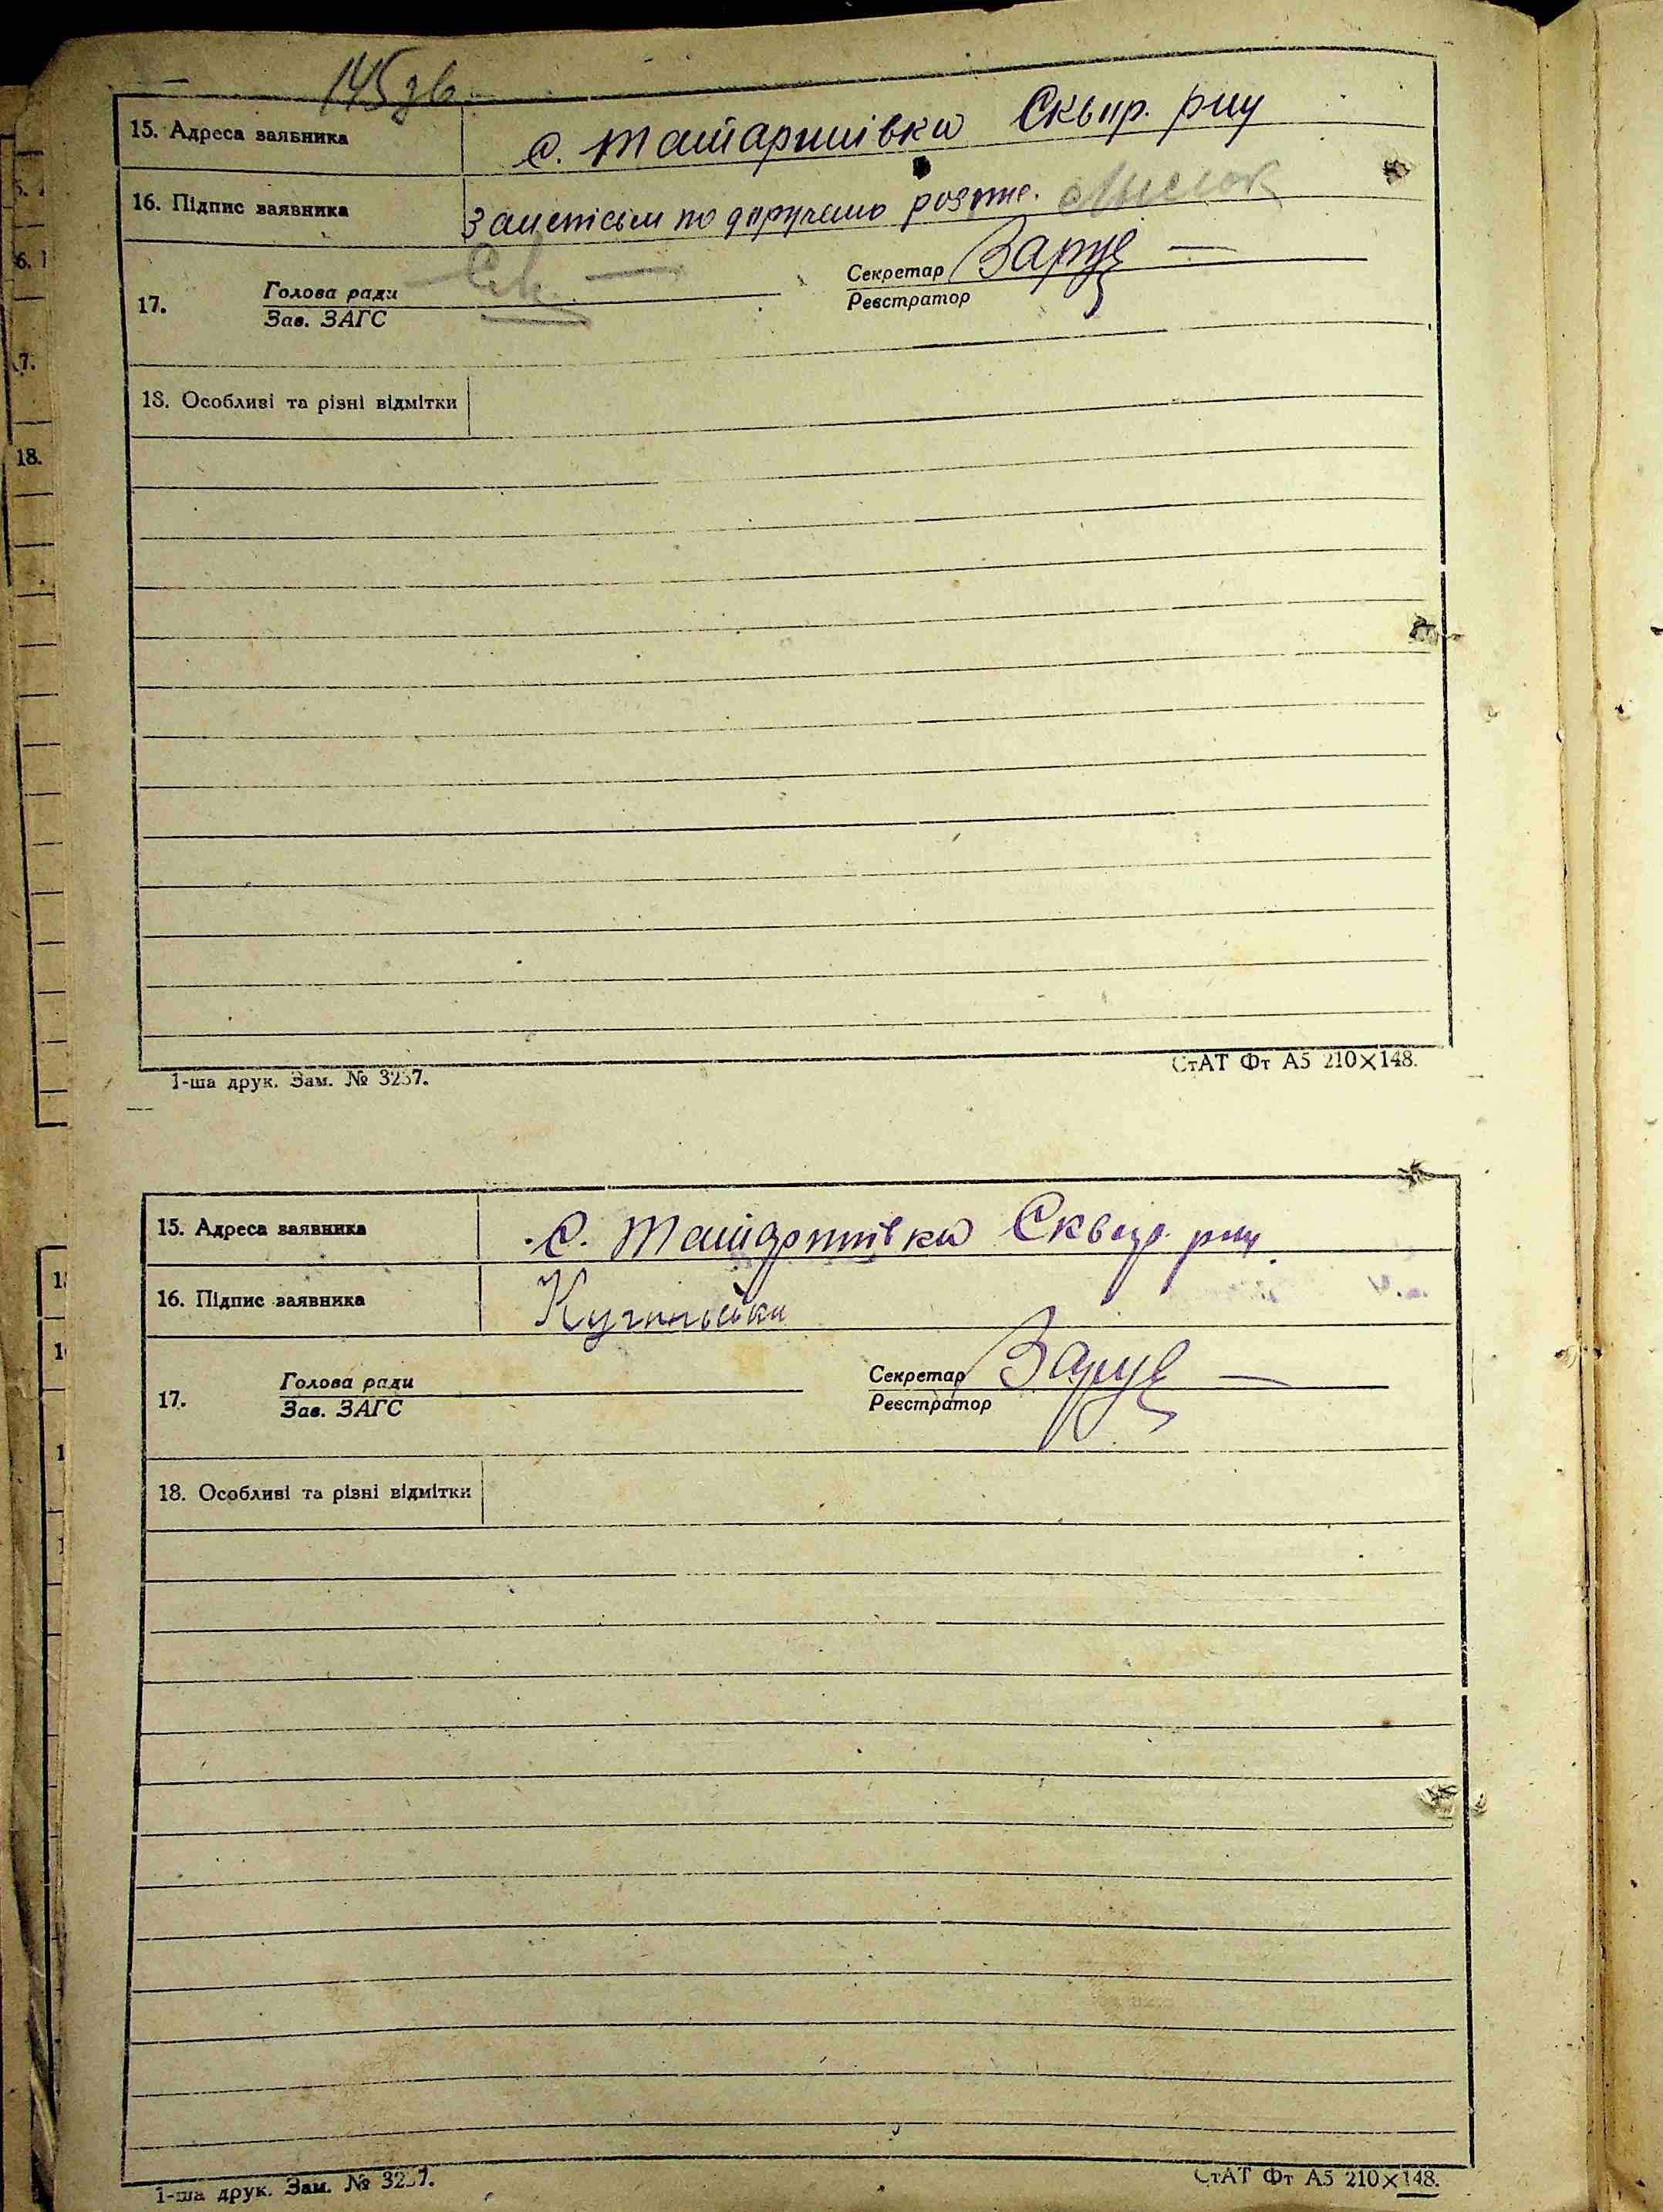 145зв
15. Адреса заявника с. Татаринівка Сквир. р-ну
16. Підпис заявника по доручению
17. Голова ради Секретар Заруд
Зав. ЗАГС Реєстратор
18. Особливі та різні відмітки
1-ша друк. Зам. № 3237. СтАТ Фт А5 210×148.
15. Адреса заявника с. Татаринівка Сквир. р-ну
16. Підпис заявника
17. Голова ради Секретар Заруд
Зав. ЗАГС Реєстратор
18. Особливі та різні відмітки
1-ша друк. Зам. № 3237. СтАТ Фт А5 210×148.